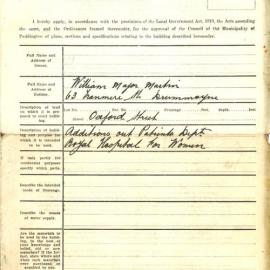 I hereby apply, in accordance with the provisions of the Local Government Act, 1919, the Acts amending
the same, and the Ordinances framed thereunder, for the approval of the Council of the Municipality of
Paddington of plans, sections and specifications relating to the building described hereunder.
Full Name and
Address of
Owner.
Full Name and
Address of
Builder.
William Major Martin
63 St. Drummoyne
Description of land
on which it is pro-
posed to erect build-
ing.
Lot No. Sec. Frontage feet. Depth feet
Street Oxford Street
Description of build-
ing and purpose for
which it is to be
used.
Additions out Patients Dept.
Royal Hospital for Women
If only partly for
residential purposes
specify which parts.
Describe the intended
mode of drainage.
Describe the means
of water supply.
Are the materials to
be used in the build-
ing, to the best of
your knowledge and
belief, old or new
materials? If the for-
mer, state where and
when such materials
were purchased or